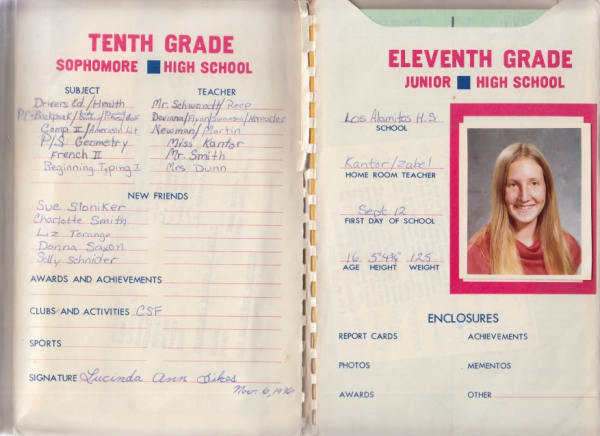 TENTH GRADE
SOPHOMORE HIGH SCHOOL
SUBJECT TEACHER
Drivers Ed./Health Mr. Schwandt/Reep
Comp I/American Lit Newman/Martin
P/S Geometry Miss Kantor
French II Mr. Smith
Beginning Typing I Mrs Dunn
NEW FRIENDS
Sue Sloniker
Charlotte Smith
Liz Torango
Donna Saxon
Sally Schnider
AWARDS AND ACHIEVEMENTS
CLUBS AND ACTIVITIES CSF
SPORTS
SIGNATURE Lucinda Ann Sikes
Nov. 6, 1976
ELEVENTH GRADE
JUNIOR HIGH SCHOOL
Los Alamitos H.S
SCHOOL
Kantor/Zabel
HOME ROOM TEACHER
Sept 12
FIRST DAY OF SCHOOL
16 5'4¾" 125
AGE HEIGHT WEIGHT
ENCLOSURES
REPORT CARDS ACHIEVEMENTS
PHOTOS MEMENTOS
AWARDS OTHER